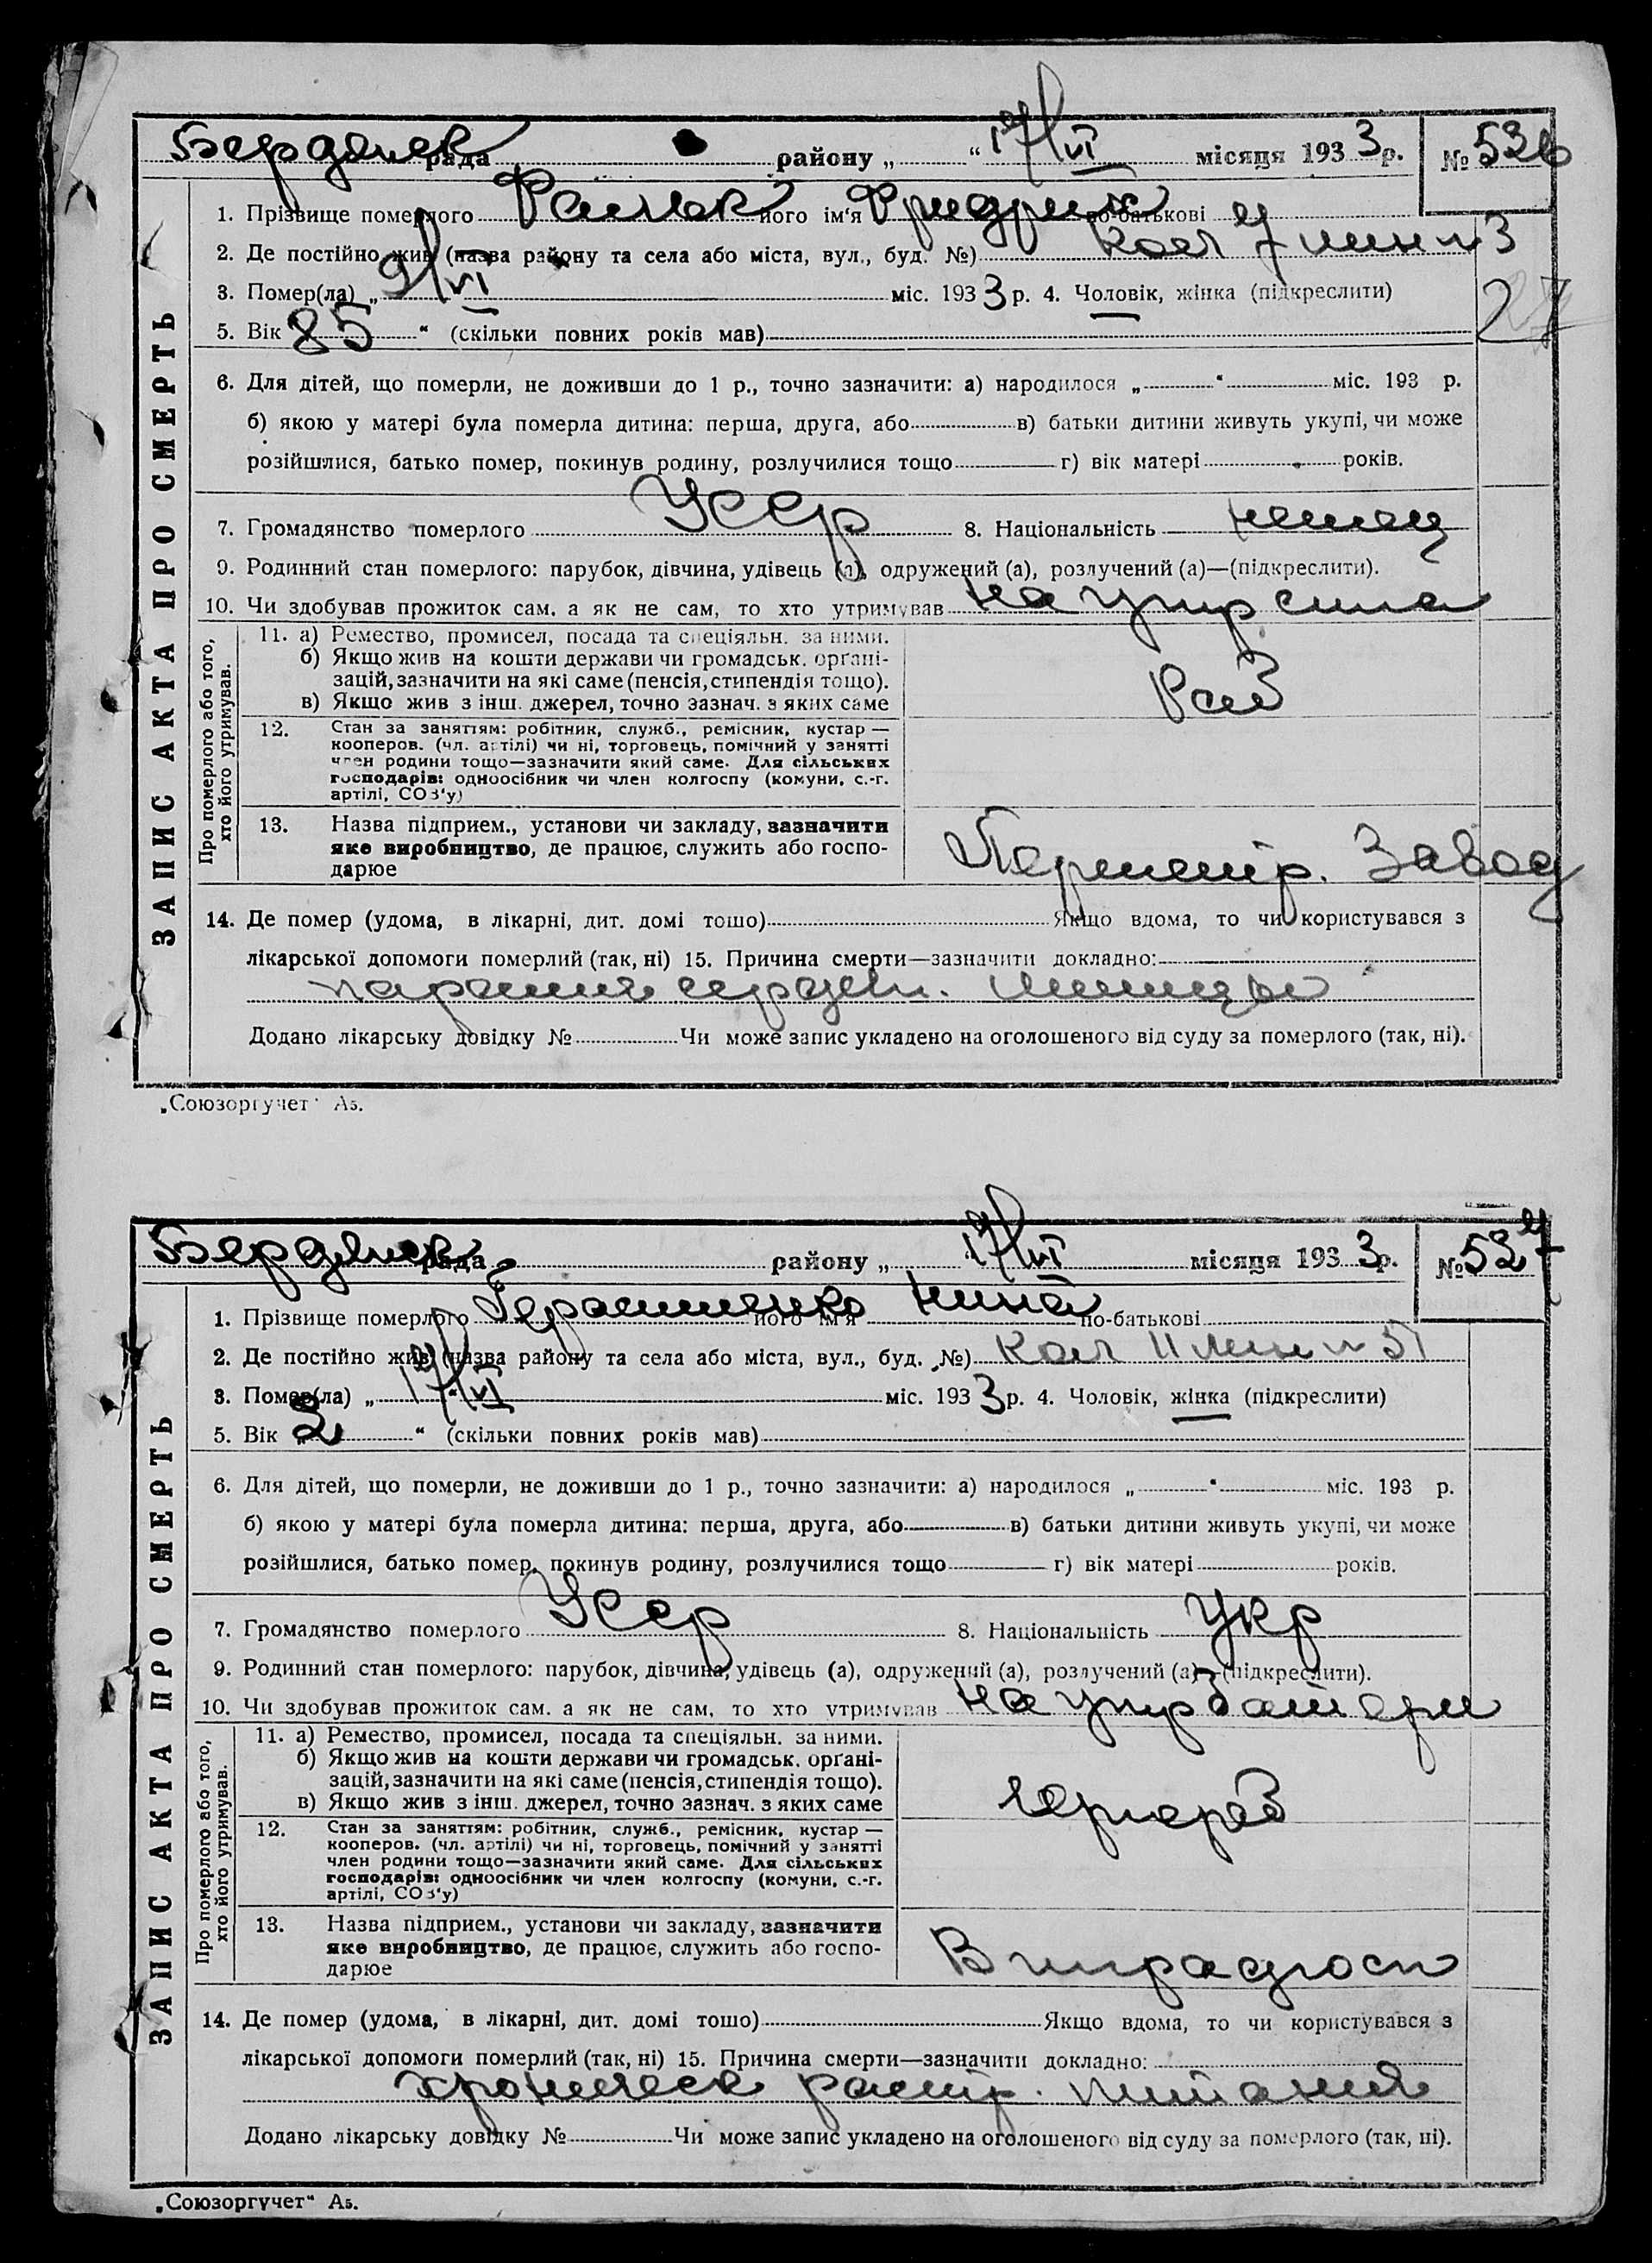 ЗАПИС АКТА ПРО СМЕРТЬ
Бердянск рада району „ “ 17/VI місяця 1933 р. № 526
1. Прізвище померлого його ім'я Фридрих по-батькові
2. Де постійно жив (назва району та села або міста, вул., буд. №) Кол 7 лин 3
3. Помер(ла) „ 9/VI міс. 1933 р. 4. Чоловік, жінка (підкреслити)
27
5. Вік 85 “ (скільки повних років мав)
6. Для дітей, що померли, не доживши до 1 р., точно зазначити: а) народилося „ “ міс. 193 р.
б) якою у матері була померла дитина: перша, друга, або в) батьки дитини живуть укупі, чи може
розійшлися, батько помер, покинув родину, розлучилися тощо г) вік матері років.
7. Громадянство померлого Усср 8. Національність немец
9. Родинний стан померлого: парубок, дівчина, удівець (а), одружений (а), розлучений (а)—(підкреслити).
10. Чи здобував прожиток сам, а як не сам, то хто утримував на утр сина
Про померлого або того, хто його утримував.
11. а) Ремество, промисел, посада та спеціяльн. за ними.
б) Якщо жив на кошти держави чи громадськ. орґані-
зацій, зазначити на які саме (пенсія, стипендія тощо).
в) Якщо жив з інш. джерел, точно зазнач. з яких саме
Раб
12. Стан за заняттям: робітник, служб., ремісник, кустар —
кооперов. (чл. артілі) чи ні, торговець, помічний у занятті
член родини тощо—зазначити який саме. Для сільських
господарів: одноосібник чи член колгоспу (комуни, с.-г.
артілі, СОЗ'у)
13. Назва підприєм., установи чи закладу, зазначити
яке виробництво, де працює, служить або госпо-
дарює
Первомір. Завод
14. Де помер (удома, в лікарні, дит. домі тощо) Якщо вдома, то чи користувався з
лікарської допомоги померлий (так, ні) 15. Причина смерти—зазначити докладно:
паралич сердеч. мишцы
Додано лікарську довідку № Чи може запис укладено на оголошеного від суду за померлого (так, ні).
„Союзоргучет“ А5.
ЗАПИС АКТА ПРО СМЕРТЬ
Бердянск рада району „ “ 17/VI місяця 1933 р. № 527
1. Прізвище померлого Герасименко його ім'я Нина по-батькові
2. Де постійно жив (назва району та села або міста, вул., буд. №) Кол 11 лин № 51
3. Помер(ла) „ 17/VI “ міс. 1933 р. 4. Чоловік, жінка (підкреслити)
5. Вік „ 2 “ (скільки повних років мав)
6. Для дітей, що померли, не доживши до 1 р., точно зазначити: а) народилося „ “ міс. 193 р.
б) якою у матері була померла дитина: перша, друга, або в) батьки дитини живуть укупі, чи може
розійшлися, батько помер, покинув родину, розлучилися тощо г) вік матері років.
7. Громадянство померлого Усср 8. Національність Укр
9. Родинний стан померлого: парубок, дівчина, удівець (а), одружений (а), розлучений (а)—(підкреслити).
10. Чи здобував прожиток сам, а як не сам, то хто утримував на утр матери
Про померлого або того, хто його утримував.
11. а) Ремество, промисел, посада та спеціяльн. за ними.
б) Якщо жив на кошти держави чи громадськ. орґані-
зацій, зазначити на які саме (пенсія, стипендія тощо).
в) Якщо жив з інш. джерел, точно зазнач. з яких саме
чернораб
12. Стан за заняттям: робітник, служб., ремісник, кустар —
кооперов. (чл. артілі) чи ні, торговець, помічний у занятті
член родини тощо—зазначити який саме. Для сільських
господарів: одноосібник чи член колгоспу (комуни, с.-г.
артілі, СОЗ'у)
13. Назва підприєм., установи чи закладу, зазначити
яке виробництво, де працює, служить або госпо-
дарює
14. Де помер (удома, в лікарні, дит. домі тощо) Якщо вдома, то чи користувався з
лікарської допомоги померлий (так, ні) 15. Причина смерти—зазначити докладно:
хроническ расстр. питания
Додано лікарську довідку № Чи може запис укладено на оголошеного від суду за померлого (так, ні).
„Союзоргучет“ А5.